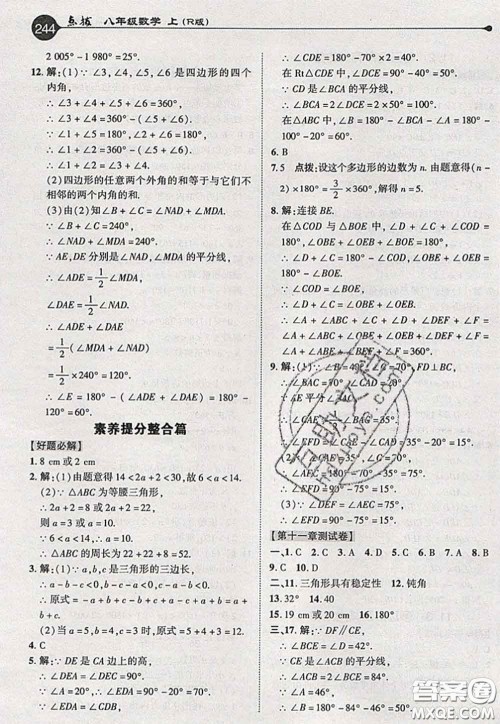 244 点拨 八年级数学 上(R版)
2 005°-1 980°=25°.
12. 解:(1)∵∠3、∠4、∠5、∠6是四边形的四个
内角,
∴∠3+∠4+∠5+∠6=360°.
∴∠3+∠4=360°-(∠5+∠6).
∵∠1+∠5=180°,∠2+∠6=180°,
∴∠1+∠2=360°-(∠5+∠6).
∴∠1+∠2=∠3+∠4.
(2)四边形的任意两个外角的和等于与它们不
相邻的两个内角的和.
(3)由(2)知∠B+∠C=∠NAD+∠MDA.
∵∠B+∠C=240°,
∴∠NAD+∠MDA=240°.
∵AE,DE分别是∠NAD,∠MDA的平分线,
∴∠ADE=1/2∠MDA,
∠DAE=1/2∠NAD.
∴∠ADE+∠DAE=
1/2(∠MDA+∠NAD)=
1/2×240°=120°.
∴∠E=180°-120°=60°.
素养提分整合篇
【好题必解】
1. 8 cm或2 cm
2. 解:(1)由题意得10-4<2a<10+4,故14>
2a>6.
(2)∵△ABC为等腰三角形,
∴2a+2=8或2a+2=12,则a=3或a=5.
∵6<2a<14,
∴3<a<7.
∴a=5.
∴2a+2=12.
∴△ABC的周长为22+5×2=32.
3. 解:(1)∵a,b,c是三角形的三边长,
∴a-b-c<0,b-c-a<0,c-a-b<0.
∴原式=-a+b+c-b+c+a-c+a+b=
a+b+c.
(2)当a=5,b=4,c=3时,原式=5+4+3=12.
4. C
5. 解:(1)∵DE是CA边上的高,
∴∠DEA=∠DEC=90°.
∵∠A=20°,
∴∠EDA=90°-20°=70°.
∴∠CDE=∠CDA-∠EDA=110°-70°=
40°.
在Rt△CDE中,∠DCE=90°-40°=50°.
∵CD是∠BCA的平分线,
∴∠BCA=2∠DCE=2×50°=100°.
(2)∠B=180°-∠BCA-∠A=180°-
100°-20°=60°.
6. B
7. 5 点拨:设这个多边形的边数为n.由题意得(n-
2)×180°=3/2×360°,解得n=5.
8. 解:连接BE.
在△COD与△BOE中,∵∠C+∠D+∠COD=
180°,∠OBE+∠OEB+∠BOE=180°,
∠COD=∠BOE,
∴∠C+∠D=∠OBE+∠OEB.
∴∠A+∠ABC+∠C+∠D+∠DEF+∠F=
∠A+∠ABC+∠OBE+∠OEB+∠DEF+
∠F=∠A+∠ABE+∠BEF+∠F=360°.
∴∠EFD=90°-∠FED=15°.
【第十一章测试卷】
二、11. 三角形具有稳定性 12. 钝角
13. 6 14. 40
15. 19 cm或20 cm 16. 180°
三、17. 解:∵DF∥CE,
∴∠BCE=∠D=42°.
∵CE是∠ACB的平分线,
∴∠ACB=2∠BCE=84°.
∴∠A=180°-∠B-∠ACB=32°.
答案圈
MXQE.COM